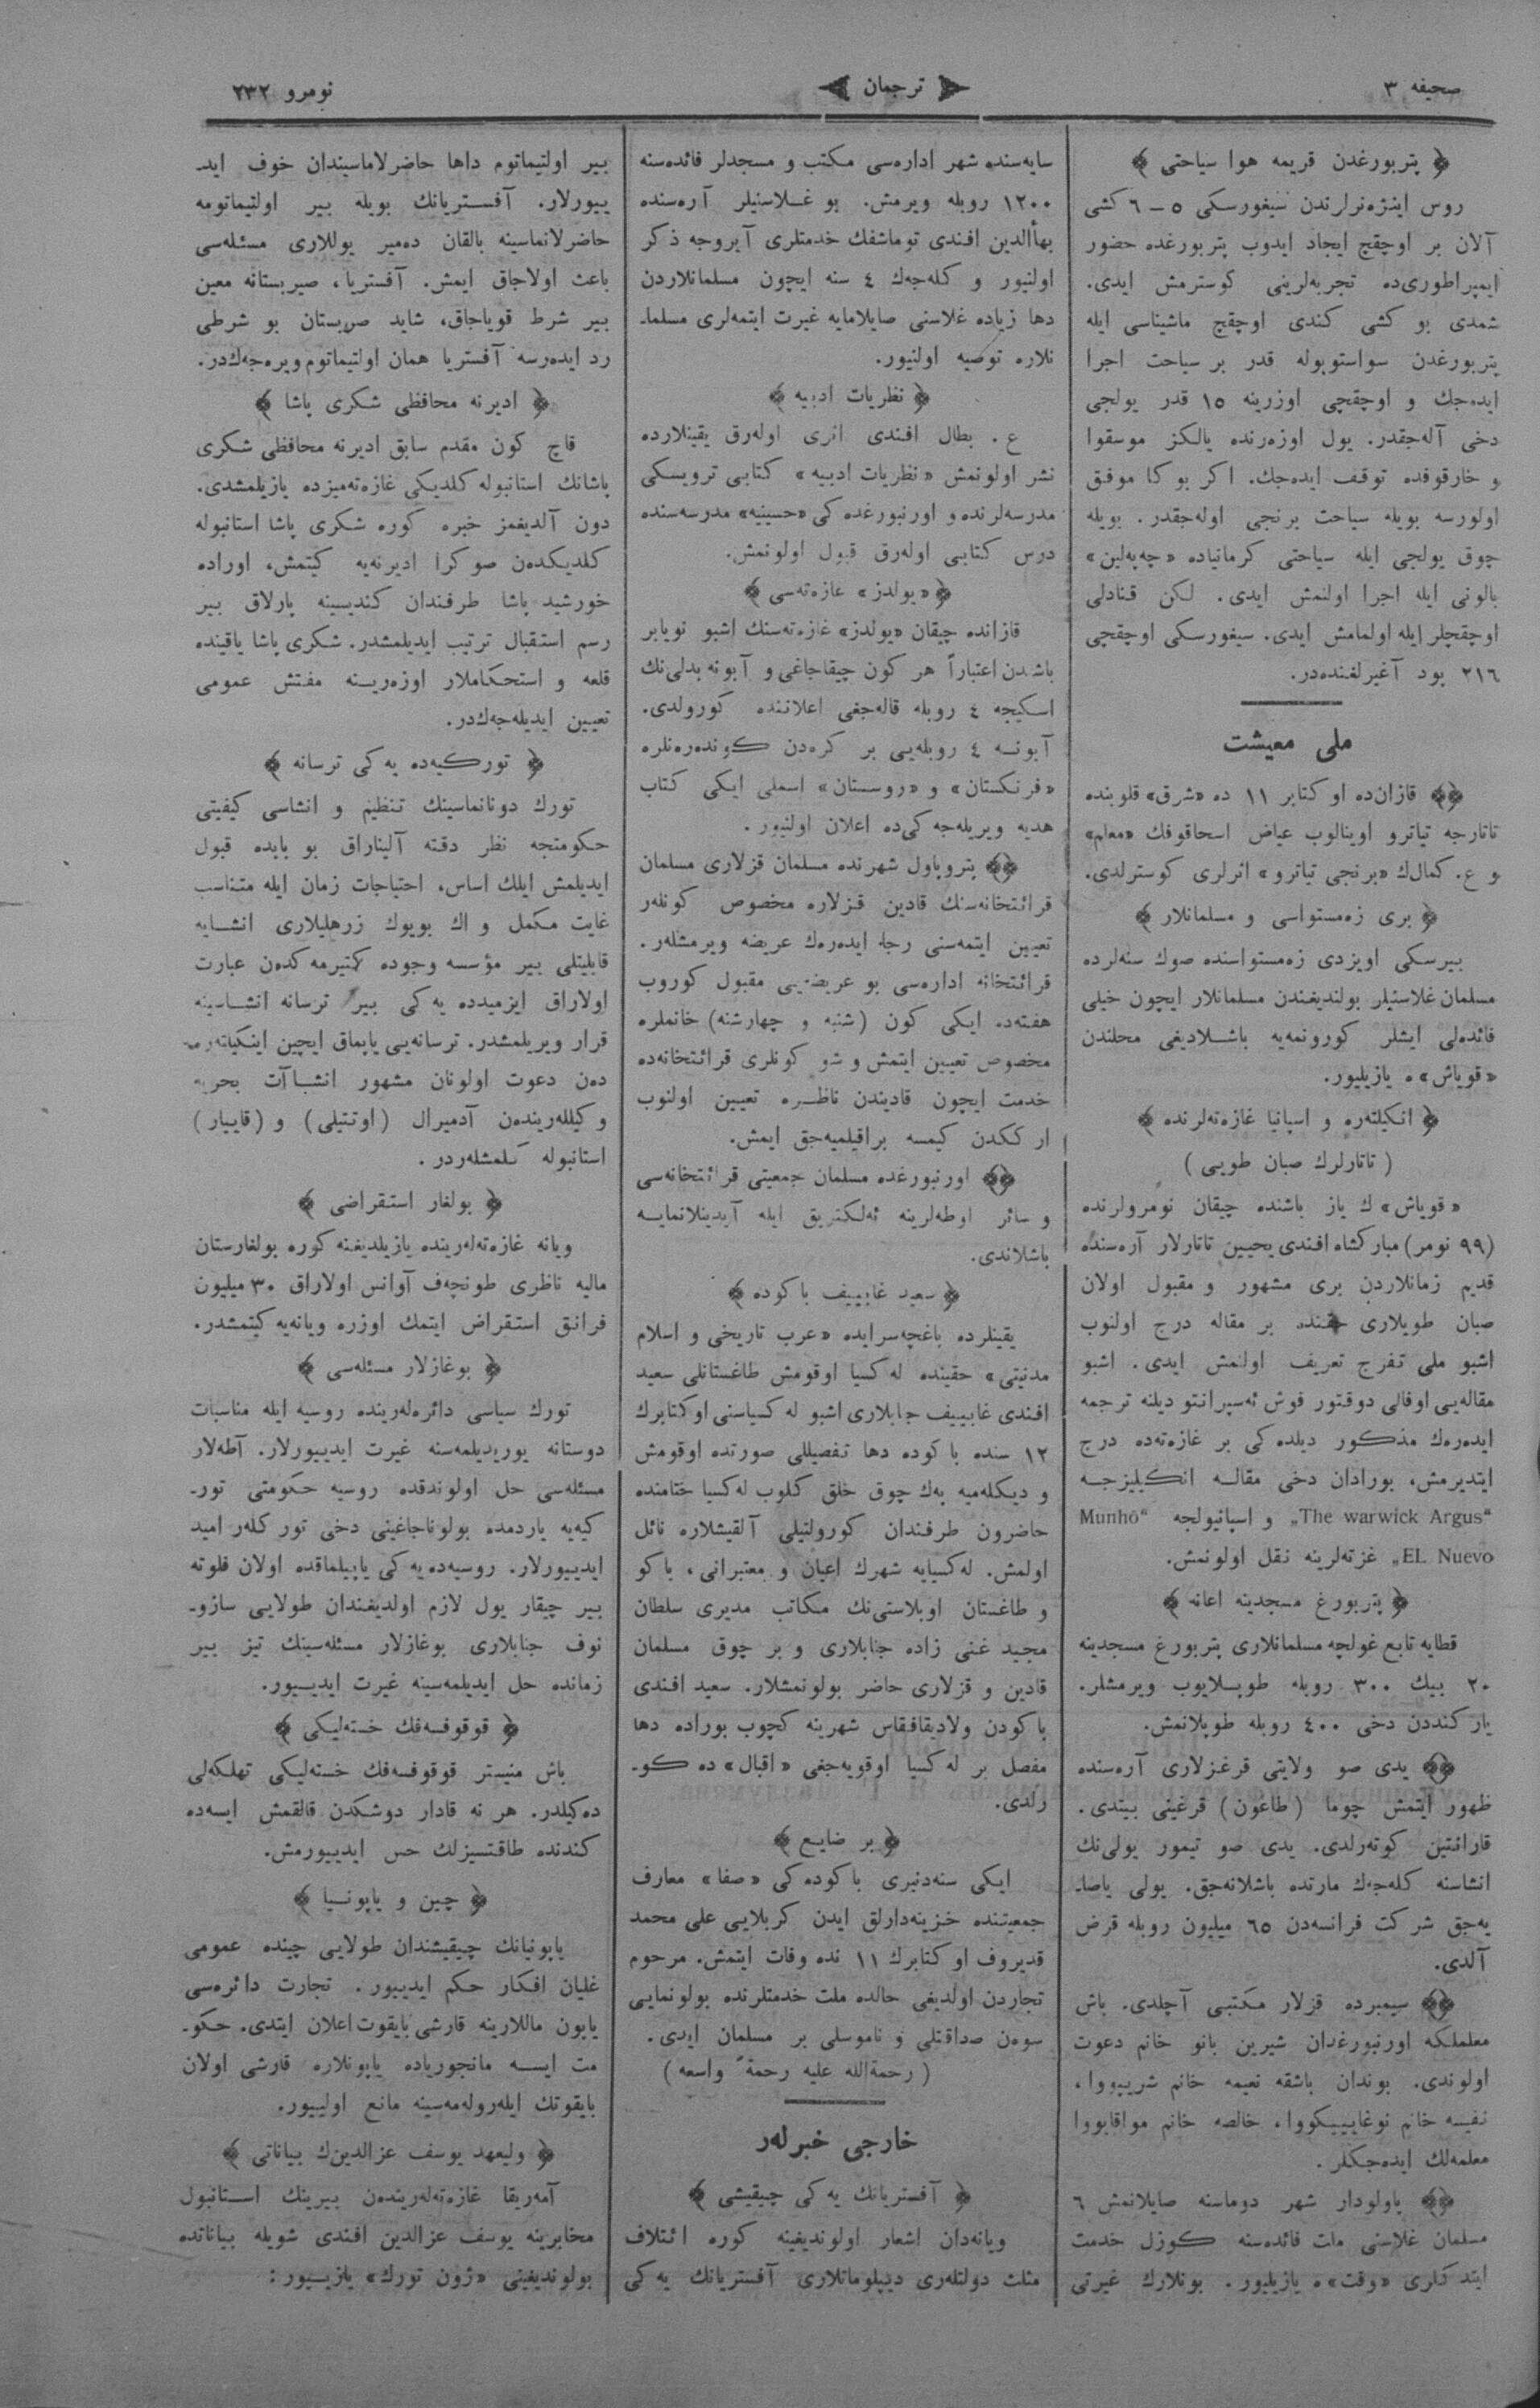 صحيفه ٣
ترجمان
نومرو ٢٣٢
﴿ پتربورغدن قريمه هوا سياحتى ﴾
روس اينژه‌نرلرندن سيغورسكى ٥ – ٦ كشى
آلان بر اوچقچ ايجاد ايدوب پتربورغده حضور
ايمپراطورى‌ده تجربه‌لرينى كوسترمش ايدى.
شمدى بو كشى كندى اوچقچ ماشيناسى ايله
پتربورغدن سواستوپوله قدر بر سياحت اجرا
ايده‌جك و اوچقچى اوزرينه ١٥ قدر يولجى
دخى آله‌جقدر. يول اوزه‌رنده يالكز موسقوا
و خارقوفده توقف ايده‌جك. اكر بو كا موفق
اولورسه بويله سياحت برنجى اوله‌جقدر. بويله
چوق يولجى ايله سياحتى كرمانياده «چه‌په‌لين»
بالونى ايله اجرا اولنمش ايدى. لكن قنادلى
اوچقچلر ايله اولمامش ايدى. سيغورسكى اوچقچى
٢١٦ پود آغيرلغنده‌در.
ملى معيشت
﴿﴾ قازان‌ده اوكتابر ١١ ده «شرق» قلوبنده
تاتارجه تياترو اوينالوب عياض اسحاقوفك «معلم»
و ع. كمال‌ك «برنجى تياترو» اثرلرى كوسترلدى.
﴿ برى زه‌مستواسى و مسلمانلار ﴾
بيرسكى اويزدى زه‌مستواسنده صوك سنه‌لرده
مسلمان غلاسنيلر بولنديغندن مسلمانلار ايچون خيلى
فائده‌لى ايشلر كورونمه‌يه باشلاديغى محلندن
«قوياش»ه يازيليور.
﴿ انكيلتره و اسپانيا غازه‌ته‌لرنده ﴾
(تاتارلرك صبان طويى)
«قوياش» ك ياز باشنده چيقان نومرولرنده
(٩٩ نومر) مباركشاه افندى يحيين تاتارلار آره‌سنده
قديم زمانلاردن برى مشهور و مقبول اولان
صبان طويلارى حقنده بر مقاله درج اولنوب
اشبو ملى تفرج تعريف اولنمش ايدى. اشبو
مقاله‌يى اوفالى دوقتور فوش ئه‌سپرانتو ديلنه ترجمه
ايده‌رك مذكور ديلده كى بر غازه‌ته‌ده درج
ايتديرمش، بورادان دخى مقاله انكيليزجه
„The warwick Argus“ و اسپانيولجه „Munho
EL Nuevo“ غزته‌لرينه نقل اولونمش.
﴿ پتربورغ مسجدينه اعانه ﴾
قطايه تابع غولجه مسلمانلارى پتربورغ مسجدينه
٢٠ بيك ٣٠٠ روبله طوپلايوب ويرمشلر.
ياركنددن دخى ٤٠٠ روبله طوپلانمش.
﴿﴾ يدى صو ولايتى قرغزلارى آره‌سنده
ظهور ايتمش چوما (طاعون) قرغينى بيتدى.
قارانتين كوته‌رلدى. يدى صو تيمور يولى‌نك
انشاسنه كله‌جك مارتده باشلانه‌جق. يولى ياصا-
يه‌جق شركت فرانسه‌دن ٦٥ ميليون روبله قرض
آلدى.
﴿﴾ سيمبرده قزلار مكتبى آچلدى. باش
معلملكه اورنبورغدان شيرين بانو خانم دعوت
اولوندى. بوندان باشقه نعيمه خانم شريپووا،
نفيسه خانم نوغايبيكووا، خالصه خانم مواقابووا
معلمه‌لك ايده‌جكلر.
﴿﴾ ياولودار شهر دوماسنه صايلانمش ٦
مسلمان غلاسنى ملت فائده‌سنه كوزل خدمت
ايتدكلرى «وقت»ه يازيليور. بونلارك غيرتى
سايه‌سنده شهر اداره‌سى مكتب و مسجدلر فائده‌سنه
١٢٠٠ روبله ويرمش. بو غلاسنيلر آره‌سنده
بهأالدين افندى توماشفك خدمتلرى آيروجه ذكر
اولنيور و كله‌جك ٤ سنه ايچون مسلمانلاردن
دها زياده غلاسنى صايلامايه غيرت ايتمه‌لرى مسلما-
نلاره توصيه اولنيور.
﴿ نظريات ادبيه ﴾
ع. بطال افندى اثرى اوله‌رق يقينلارده
نشر اولونمش «نظريات ادبيه» كتابى ترويسكى
مدرسه‌لرنده و اورنبورغده كى «حسينيه» مدرسه‌سنده
درس كتابى اوله‌رق قبول اولونمش.
﴿ «يولدز» غازه‌ته‌سى ﴾
قازانده چيقان «يولدز» غازه‌ته‌سنك اشبو نويابر
باشدن اعتباراً هر كون چيقاجاغى و آبونه بدلى‌نك
اسكيجه ٤ روبله قاله‌جغى اعلاننده كورولدى.
آبونه ٤ روبله‌يى بر كره‌دن كونده‌ره‌نلره
«فرنكستان» و «روسستان» اسملى ايكى كتاب
هديه ويريله‌جه كى‌ده اعلان اولنيور.
﴿﴾ پتروپاول شهرنده مسلمان قزلارى مسلمان
قرائتخانه‌سنك قادين قزلاره مخصوص كونلر
تعيين ايتمه‌سنى رجا ايده‌رك عريضه ويرمشلر.
قرائتخانه اداره‌سى بو عريضه‌يى مقبول كوروب
هفته‌ده ايكى كون (شنبه و چهارشنبه) خانملره
مخصوص تعيين ايتمش و شو كونلرى قرائتخانه‌ده
خدمت ايچون قاديندن ناظره تعيين اولنوب
ار ككدن كيمسه براقيلميه‌جق ايمش.
﴿﴾ اورنبورغده مسلمان جمعيتى قرائتخانه‌سى
و سائر اوطه‌لرينه ئه‌لكتريق ايله آيدينلانمايه
باشلاندى.
﴿ سعيد غابييف باكوده ﴾
يقينلرده باغچه‌سرايده «عرب تاريخى و اسلام
مدنيتى» حقينده له‌كسيا اوقومش طاغستانلى سعيد
افندى غابييف جنابلارى اشبو له‌كسياسنى اوكتابرك
١٢ سنده باكوده دها تفصيللى صورتده اوقومش
و ديكله‌ميه په‌ك چوق خلق كلوب له‌كسيا ختامنده
حاضرون طرفندان كورولتيلى آلقيشلاره نائل
اولمش. له‌كسيايه شهرك اعيان و معتبرانى، باكو
و طاغستان اوبلاستى‌نك مكاتب مديرى سلطان
مجيد غنى زاده جنابلارى و بر چوق مسلمان
قادين و قزلارى حاضر بولونمشلار. سعيد افندى
باكودن ولاديقافقاس شهرينه كچوب بوراده دها
مفصل بر له‌كسيا اوقويه‌جغى «اقبال» ده كو-
رلدى.
﴿ بر ضايع ﴾
ايكى سنه‌دنبرى باكوده كى «صفا» معارف
جمعيتنده خزينه‌دارلق ايدن كربلايى على محمد
قديروف اوكتابرك ١١ نده وفات ايتمش. مرحوم
تجاردن اولديغى حالده ملت خدمتلرنده بولونمايى
سوه‌ن صداقتلى و ناموسلى بر مسلمان ايدى.
(رحمةالله عليه رحمةً واسعه)
خارجى خبرلەر
﴿ آفستريانك يه‌كى چيقيشى ﴾
ويانه‌دان اشعار اولونديغينه كوره ائتلاف
مثلث دولتله‌رى ديپلوماتلارى آفستريانك يه‌كى
بير اولتيماتوم داها حاضرلاماسيندان خوف ايد-
ييورلار. آفستريانك بويله بير اولتيماتومه
حاضرلانماسينه بالقان ده‌مير يوللارى مسئله‌سى
باعث اولاجاق ايمش. آفستريا، صيربستانه معين
بير شرط قوياجاق، شايد صربستان بو شرطى
رد ايده‌رسه آفستريا همان اولتيماتوم ويره‌جه‌ك‌در.
﴿ اديرنه محافظى شكرى پاشا ﴾
قاچ كون مقدم سابق اديرنه محافظى شكرى
پاشانك استانبوله كلديكى غازه‌ته‌ميزده يازيلمشدى.
دون آلديغمز خبره كوره شكرى پاشا استانبوله
كلديكده‌ن صوكرا اديرنه‌يه كيتمش، اوراده
خورشيد پاشا طرفندان كنديسينه پارلاق بير
رسم استقبال ترتيب ايديلمشدر. شكرى پاشا ياقينده
قلعه و استحكاملار اوزه‌رينه مفتش عمومى
تعيين ايديله‌جه‌ك‌در.
﴿ توركيه‌ده يه كى ترسانه ﴾
تورك دونانماسينك تنظيم و انشاسى كيفيتى
حكومتجه نظر دقته آليناراق بو بابده قبول
ايديلمش ايلك اساس، احتياجات زمان ايله متناسب
غايت مكمل و اك بويوك زرهليلارى انشايه
قابليتلى بير مؤسسه وجوده كتيرمه كده‌ن عبارت
اولاراق ايزميدده يه كى بير ترسانه انشاسينه
قرار ويريلمشدر. ترسانه‌يى ياپماق ايچين اينكيلته‌ره-
ده‌ن دعوت اولونان مشهور انشاآت بحريه
وكيللرينده‌ن آدميرال (اوتتيلى) و (قاييار)
استانبوله كلمشله‌ردر.
﴿ بولغار استقراضى ﴾
ويانه غازه‌ته‌له‌رينده يازيلديغنه كوره بولغارستان
ماليه ناظرى طونچه‌ف آوانس اولاراق ٣٠ ميليون
فرانق استقراض ايتمك اوزره ويانه‌يه كيتمشدر.
﴿ بوغازلار مسئله‌سى ﴾
تورك سياسى دائره‌له‌رينده روسيه ايله مناسبات
دوستانه يوريديلمه‌سنه غيرت ايدييورلار. آطه‌لار
مسئله‌سى حل اولوندقده روسيه حكومتى تور-
كيه‌يه ياردمده بولوناجاغينى دخى توركلەر اميد
ايدييورلار. روسيه‌ده يه كى ياپيلماقده اولان فلوته
بير چيقار يول لازم اولديغندان طولايى سازو-
نوف جنابلارى بوغازلار مسئله‌سينك تيز بير
زمانده حل ايديلمه‌سينه غيرت ايدييور.
﴿ قوقوفسه‌فك خسته‌ليكى ﴾
باش منيستر قوقوفسه‌فك خسته‌ليكى تهلكه‌لى
ده‌كيلدر. هر نه قادار دوشكدن قالقمش ايسه‌ده
كندنده طاقتسيزلك حس ايدييورمش.
﴿ چين و ياپونيا ﴾
ياپونيانك چيقيشندان طولايى چينده عمومى
غليان افكار حكم ايدييور. تجارت دائره‌سى
ياپون ماللارينه قارشى بايقوت اعلان ايتدى. حكو-
مت ايسه مانجورياده ياپونلاره قارشى اولان
بايقوتك ايله‌روله‌مه‌سينه مانع اولييور.
﴿ وليعهد يوسف عزالدين‌ك بياناتى ﴾
آمه‌ريقا غازه‌ته‌له‌رينده‌ن بيرينك استانبول
مخابرينه يوسف عزالدين افندى شويله بياناتده
بولونديغينى «ژون تورك» يازييور: